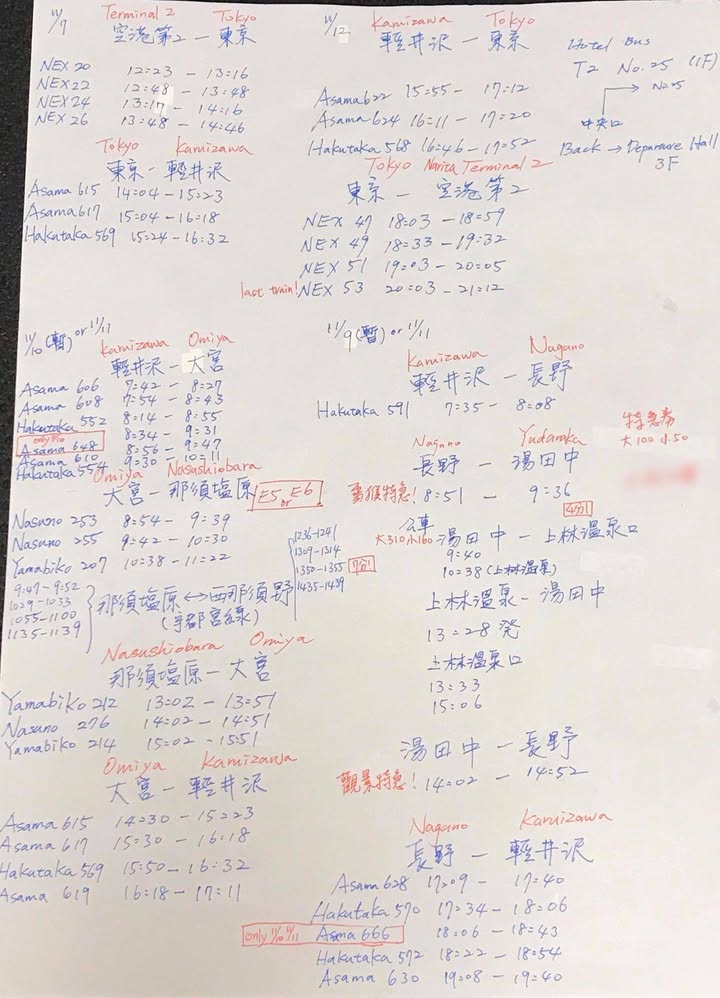 11/7 Terminal 2 Tokyo
空港第2 — 東京
NEX 20 12:23 - 13:16
NEX 22 12:48 - 13:48
NEX 24 13:17 - 14:16
NEX 26 13:48 - 14:46
Tokyo Karuizawa
東京 - 軽井沢
Asama 615 14:04 - 15:23
Asama 617 15:04 - 16:18
Hakutaka 569 15:24 - 16:32
11/12 Karuizawa Tokyo
軽井沢 — 東京
Asama 622 15:55 - 17:12
Asama 624 16:11 - 17:20
Hakutaka 568 16:46 - 17:52
Tokyo Narita Terminal 2
東京 — 空港第2
NEX 47 18:03 - 18:59
NEX 49 18:33 - 19:32
NEX 51 19:03 - 20:05
last train! NEX 53 20:03 - 21:12
Hotel Bus
T2 No.25 (1F)
→ No.25
中央口
Back → Deparure Hall
3F
11/10 (暫) or 11/11
Karuizawa Omiya
軽井沢 - 大宮
Asama 606 7:42 - 8:27
Asama 608 7:54 - 8:43
Hakutaka 552 8:14 - 8:55
only 11/10
Asama 648 8:34 - 9:31
Asama 610 8:56 - 9:47
Hakutaka 554 9:30 - 10:11
Omiya Nasushiobara
大宮 - 那須塩原 E5 or E6
Nasuno 253 8:54 - 9:39
Nasuno 255 9:42 - 10:30
Yamabiko 207 10:38 - 11:22
9:47 - 9:52
1029 - 1033
1055 - 1100
1135 - 1139
那須塩原 ↔ 西那須野
(宇都宮線)
1236 - 1241
1309 - 1314
1350 - 1355
1435 - 1439
Nasushiobara Omiya
那須塩原 — 大宮
Yamabiko 212 13:02 - 13:51
Nasuno 276 14:02 - 14:51
Yamabiko 214 15:02 - 15:51
Omiya Karuizawa
大宮 - 軽井沢
Asama 615 14:30 - 15:23
Asama 617 15:30 - 16:18
Hakutaka 569 15:50 - 16:32
Asama 619 16:18 - 17:11
11/9 (暫) or 11/11
Karuizawa Nagano
軽井沢 - 長野
Hakutaka 591 7:35 - 8:08
Nagano Yudanaka
長野 — 湯田中
特急券
大100 小50
雪猴特急! 8:51 - 9:36
公車
大310 小160 湯田中 - 上林温泉口
9:40
10:38 (上林温泉)
上林温泉 - 湯田中
13:28 発
上林温泉口
13:33
15:06
湯田中 — 長野
觀景特急! 14:02 - 14:52
Nagano Karuizawa
長野 — 軽井沢
Asama 628 17:09 - 17:40
Hakutaka 570 17:34 - 18:06
only 11/10 11/11 Asma 666 18:06 - 18:43
Hakutaka 572 18:22 - 18:54
Asama 630 19:08 - 19:40